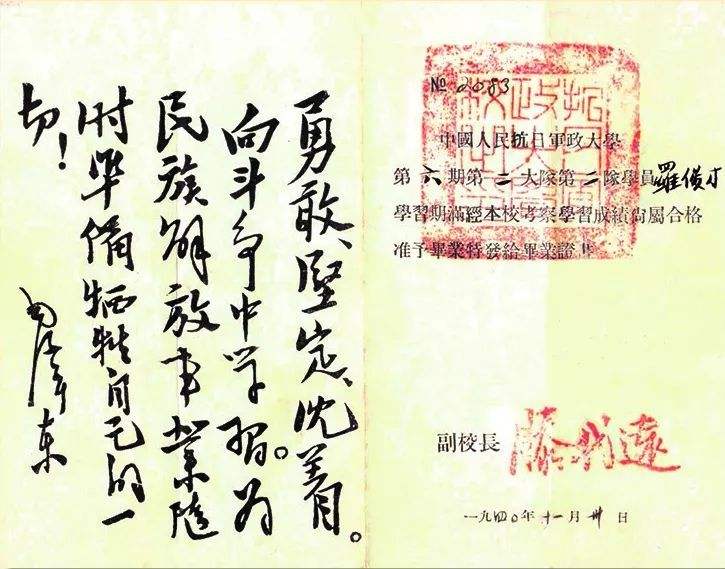 勇敢、堅定、沈着。
向斗争中学習。为
民族解放事業隨
时準備牺牲自己的一
切！
毛澤东
№ 2083
中國人民抗日軍政大學
第六期第二大隊第二隊學員羅
學習期滿經本校考察學習成績尙屬合格
准予畢業特發給畢業證書
副校長 滕代遠
一九四〇年十一月卅日